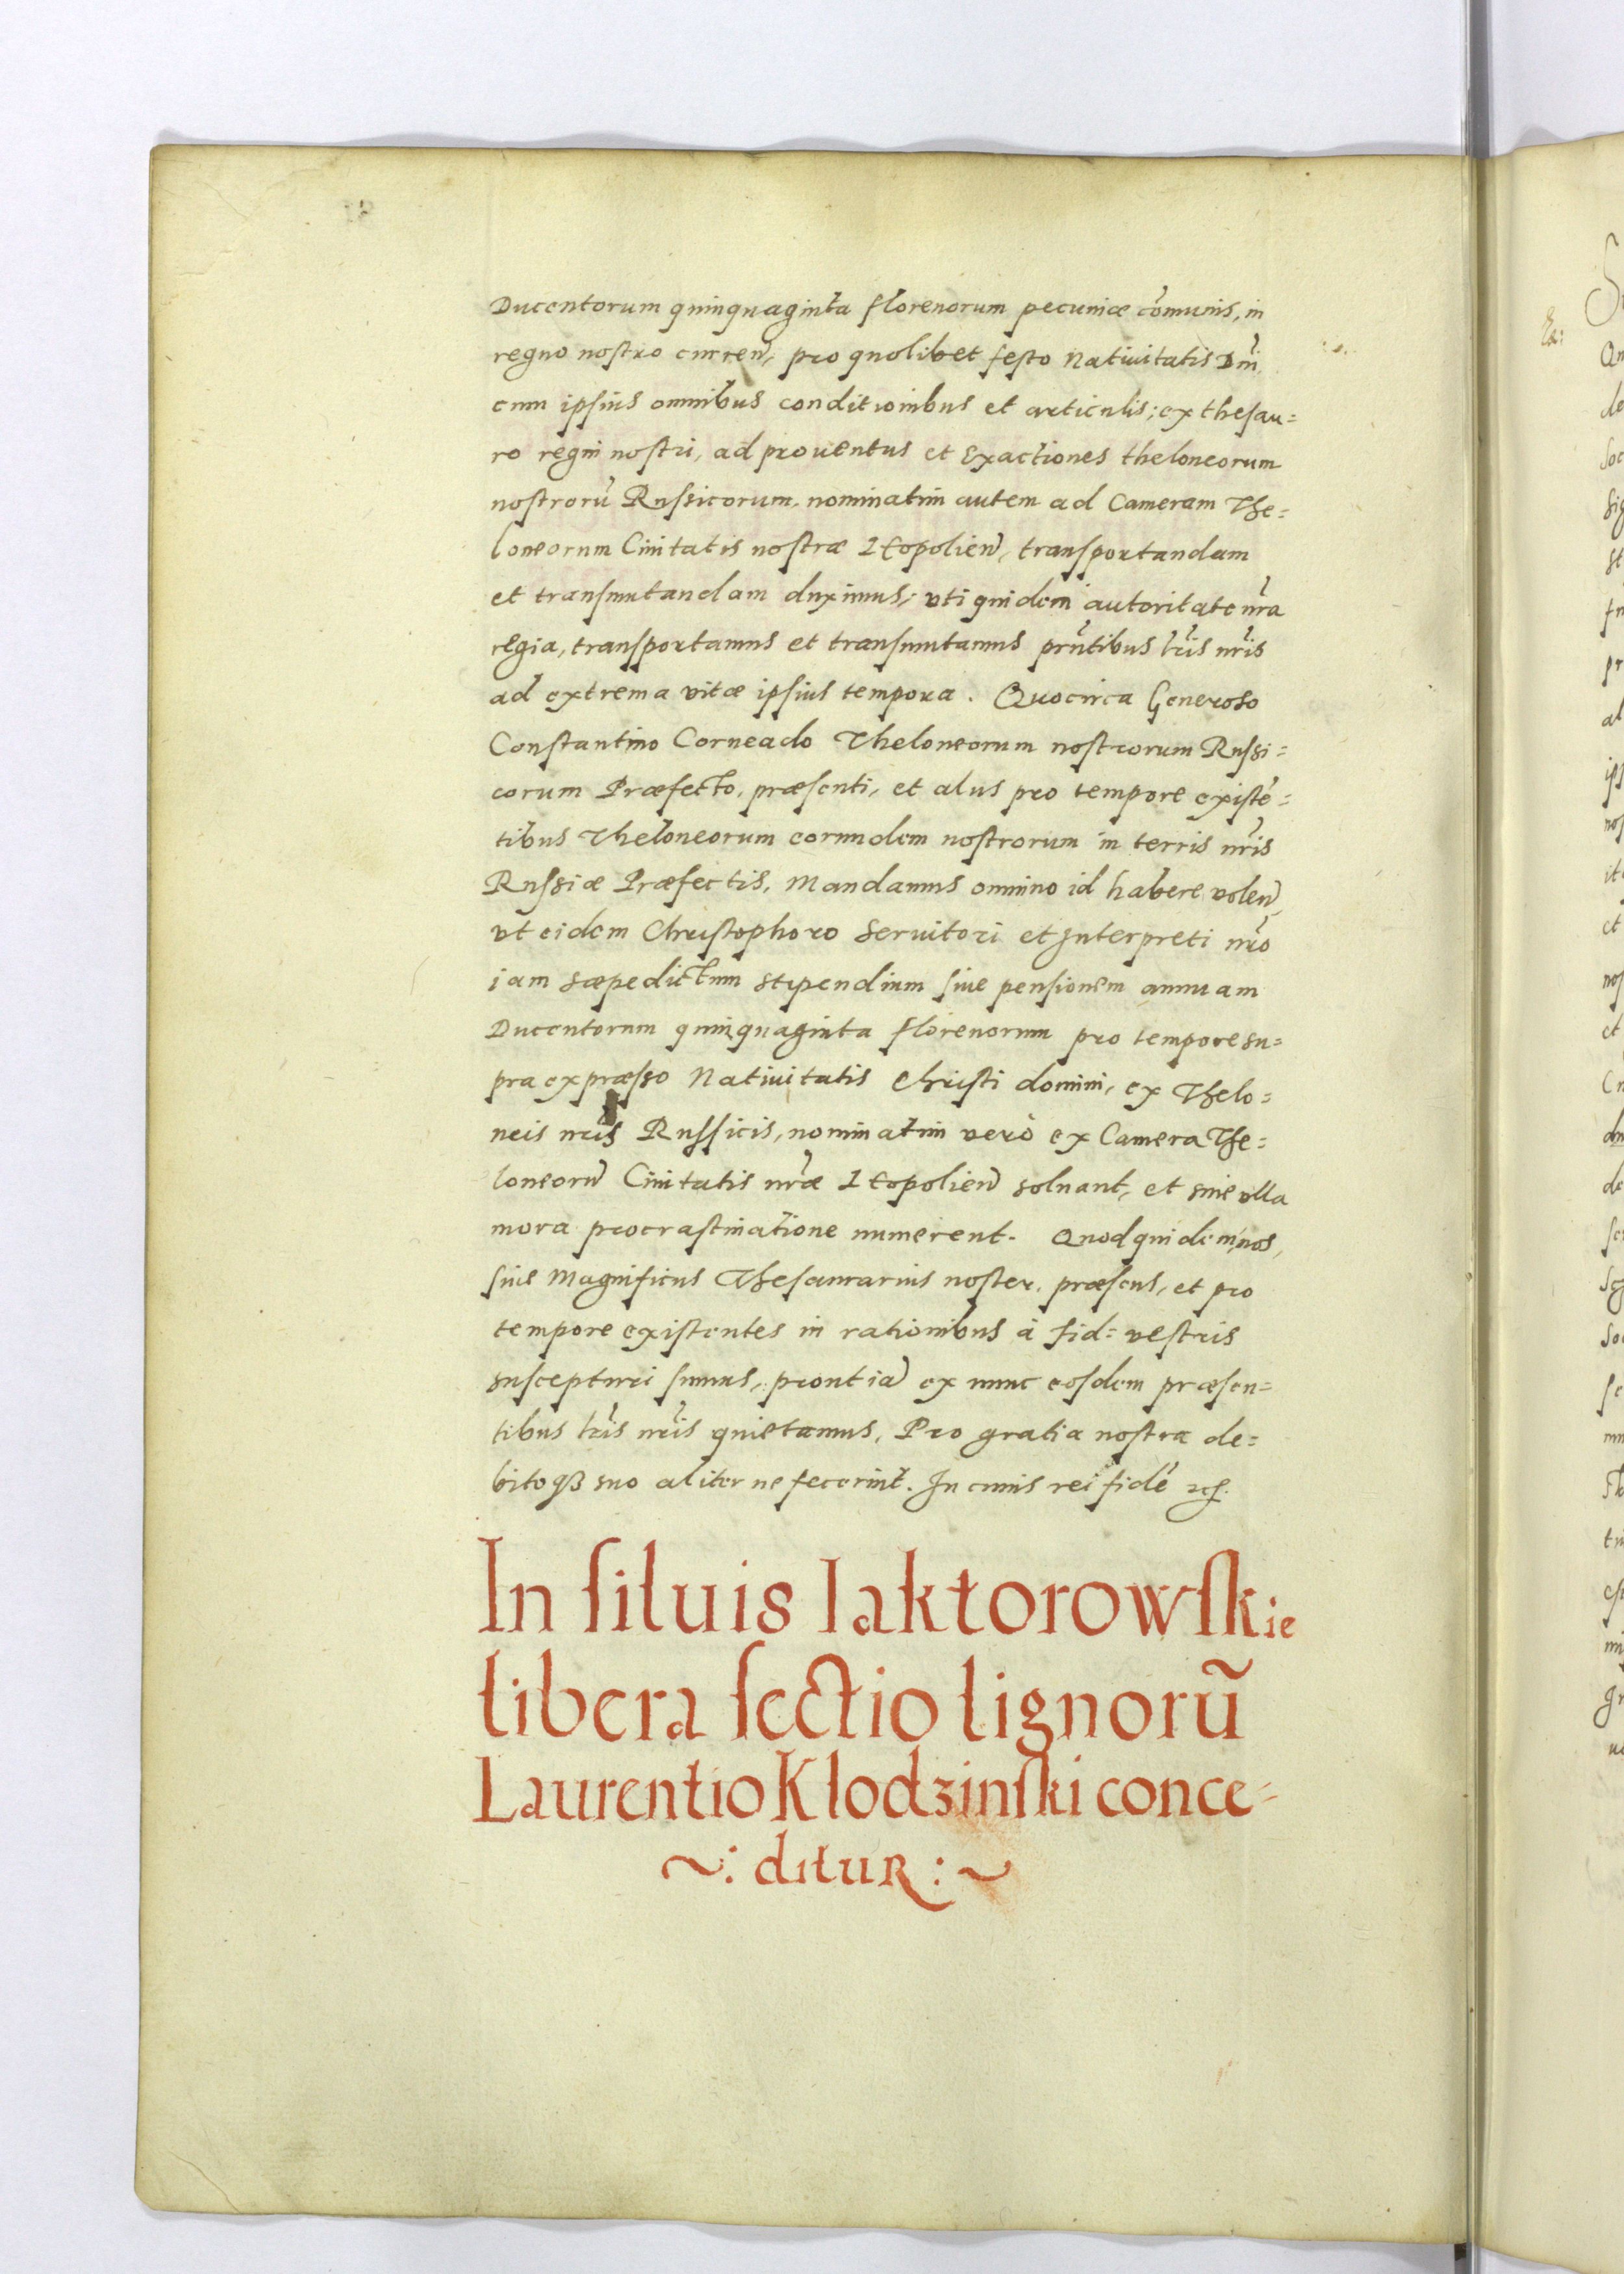 Ducentorum quinquaginta florenorum pecuniæ cōmunis, in
regno nostro curreñ, pro quolibet festo Natiuitatis Dn̄i
cum ipsius omnibus conditionibus et articulis; ex thesau=
ro regni nostri, ad prouentus et Exactiones theloneorum
nostrorū Russicorum, nominatim autem ad Cameram The=
loneorum Ciuitatis nostræ Leopolieñ, transportandam
et transmutandam duximus, vti quidem autoritate nr̄a
regia, transportamus et transmutamus prn̄tibus lr̄is nr̄is
ad extrema vitæ ipsius tempora. Quocirca Generoso
Constantino Corneado Theloneorum nostrorum Russi=
corum Præfecto, præsenti, et alijs pro tempore existē=
tibus Theloneorum eorundem nostrorum in terris nr̄is
Russiæ Præfectis, Mandamus omnino id habere voleñ,
vt eidem Christophoro Seruitori et Interpreti nr̄o
iam sæpedictum stipendium siue pensionem annuam
Ducentorum quinquaginta florenorum pro tempore su=
pra expræsso Natiuitatis Christi domini, ex Thelo=
neis nr̄is Russicis, nominatim verò ex Camera The=
loneorū Ciuitatis nr̄æ Leopolieñ soluant, et sine vlla
mora procrastinatione numerent. Quod quidem, nos,
siue Magnificus Thesaurarius noster, præsens, et pro
tempore existentes in rationibus à fid= vestris
suscepturi sumus, prout iā ex nunc eosdem præsen=
tibus lr̄is nr̄is quietamus, Pro gratia nostra de=
bitoqȝ suo aliter ne fecerint. In cuius rei fidē etc.
In siluis Iaktorowskie
libera sectio lignorū
Laurentio Klodzinski conce=
~: ditur :~